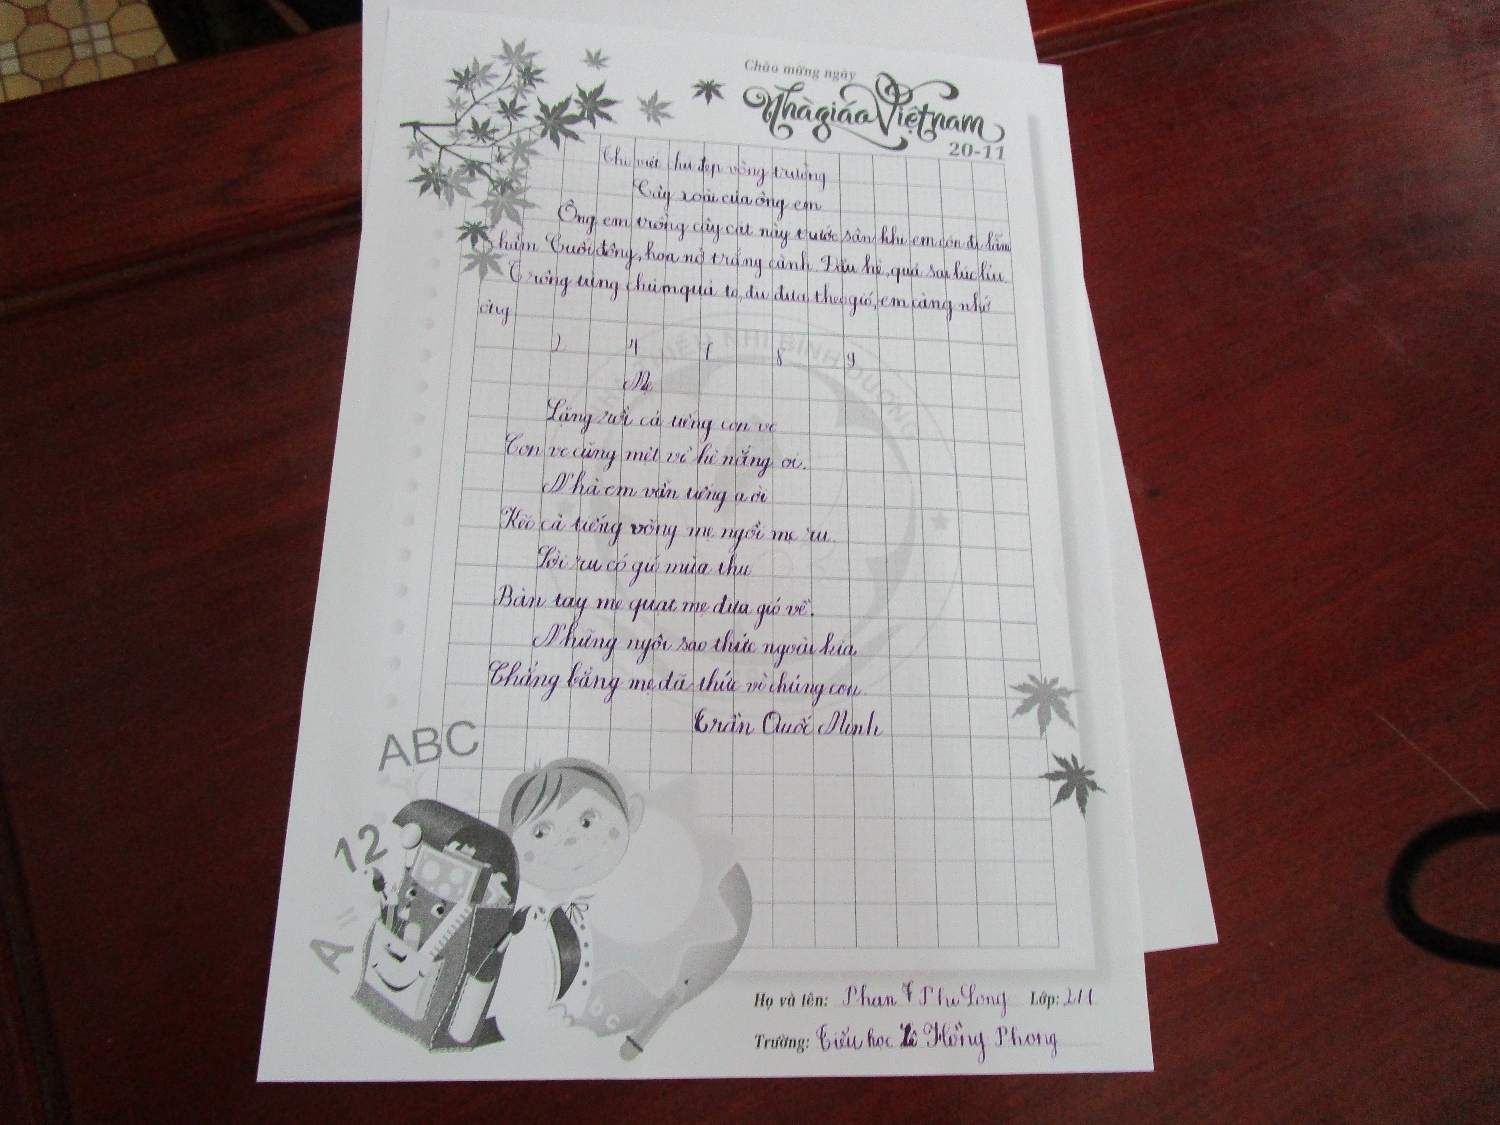 Chào mừng ngày
Nhà giáo Việt nam
20-11
Thi viết chữ đẹp vòng trường
Cây xoài của ông em
Ông em trồng cây cát này trước sân khi em còn đi lẫm
chẫm Cuối đông, hoa nở trắng cành. Đầu hè, quả sai lúc lỉu
Trông từng chùm quả to, đu đưa theo gió, em càng nhớ
ông
2 4 7 8 9
Mẹ
Lặng rồi cả tiếng con ve
Con ve cũng mệt vì hè nắng oi.
Nhà em vẫn tiếng ạ ời
Kẽo cà tiếng võng mẹ ngồi mẹ ru
Lời ru có gió mùa thu
Bàn tay mẹ quạt mẹ đưa gió về.
Những ngôi sao thức ngoài kia
Chẳng bằng mẹ đã thức vì chúng con.
Trần Quốc Minh
ABC
12
A =
b c
Họ và tên: Phan Phi Long Lớp: 2/1
Trường: Tiểu học Lê Hồng Phong
THIẾU NHI BÌNH DƯƠNG